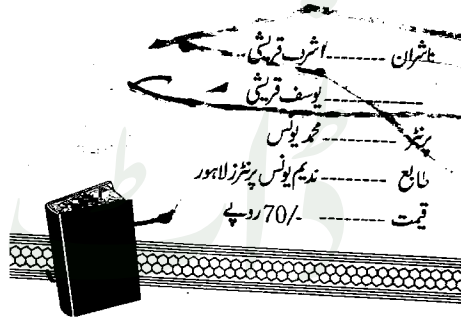 ناشران ------- اشرف قریشی
------------- یوسف قریشی
پرنٹر -------- محمد یونس
طابع ------- ندیم یونس پرنٹرز لاہور
قیمت -------- 70/- روپے